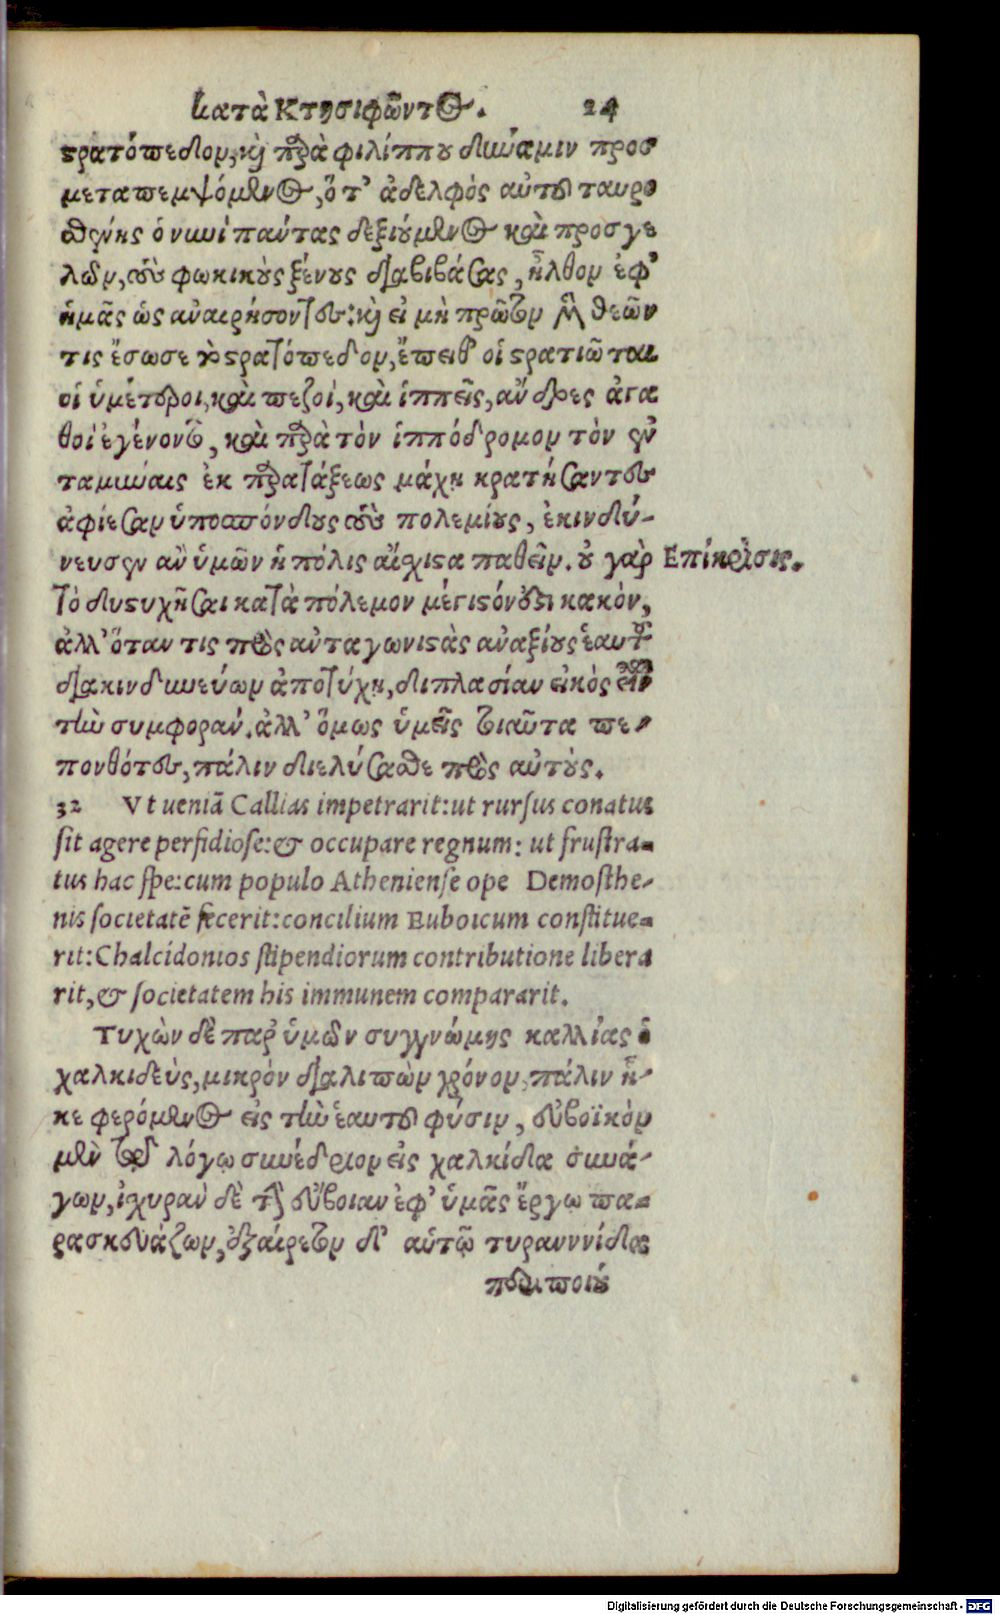 κατὰ Κτησιφῶντος. 24
στρατόπεδον, καὶ παρὰ φιλίππου δύναμιν προσ
μεταπεμψάμενος, ὅ τ' ἀδελφὸς αὐτοῦ ταυρο
σθένης ὁ νυνὶ πάντας δεξιούμενος καὶ προσγε
λῶν, τοὺς φωκικοὺς ξένους διαβιβάσας, ἦλθον ἐφ'
ἡμᾶς ὡς ἀναιρήσοντες: καὶ εἰ μὴ πρῶτον μὲν θεῶν
τις ἔσωσε τὸ στρατόπεδον, ἔπειθ' οἱ στρατιῶται
οἱ ὑμέτεροι, καὶ πεζοὶ, καὶ ἱππεῖς, ἄνδρες ἀγα
θοὶ ἐγένοντο, καὶ παρὰ τὸν ἱππόδρομον τὸν ἐν
ταμύναις ἐκ παρατάξεως μάχῃ κρατήσαντες
ἀφίεσαν ὑποσπόνδους τοὺς πολεμίους, ἐκινδύ-
νευσεν ἂν ὑμῶν ἡ πόλις αἴσχιστα παθεῖν. οὐ γὰρ Επίκρισις.
τὸ δυστυχῆσαι κατὰ πόλεμον μέγιστόν ἐστι κακὸν,
ἀλλ' ὅταν τις πρὸς ἀνταγωνιστὰς ἀναξίους ἑαυτοῦ
διακινδυνεύων ἀποτύχῃ, διπλασίαν εἰκὸς εἶναι
τὴν συμφοράν. ἀλλ' ὅμως ὑμεῖς τοιαῦτα πε-
πονθότες, πάλιν διελύσασθε πρὸς αὐτούς.
32 Vt ueniā Callias impetrarit: ut rursus conatus
sit agere perfidiose: & occupare regnum: ut frustra-
tus hac spe: cum populo Atheniense ope Demosthe-
nis societatē fecerit: concilium Euboicum constitue-
rit: Chalcidonios stipendiorum contributione libera
rit, & societatem his immunem compararit.
Τυχὼν δὲ παρ' ὑμῶν συγγνώμης καλλίας ὁ
χαλκιδεὺς, μικρὸν διαλιπὼν χρόνον, πάλιν ἧ-
κε φερόμενος εἰς τὴν ἑαυτοῦ φύσιν, εὐβοϊκὸν
μὲν τῷ λόγῳ συνέδριον εἰς χαλκίδα συνά-
γων, ἰχυρὰν δὲ τὴν εὔβοιαν ἐφ' ὑμᾶς ἔργῳ πα-
ρασκευάζων, ἐξαίρετον δ' αὑτῷ τυραννίδα
περιποιού